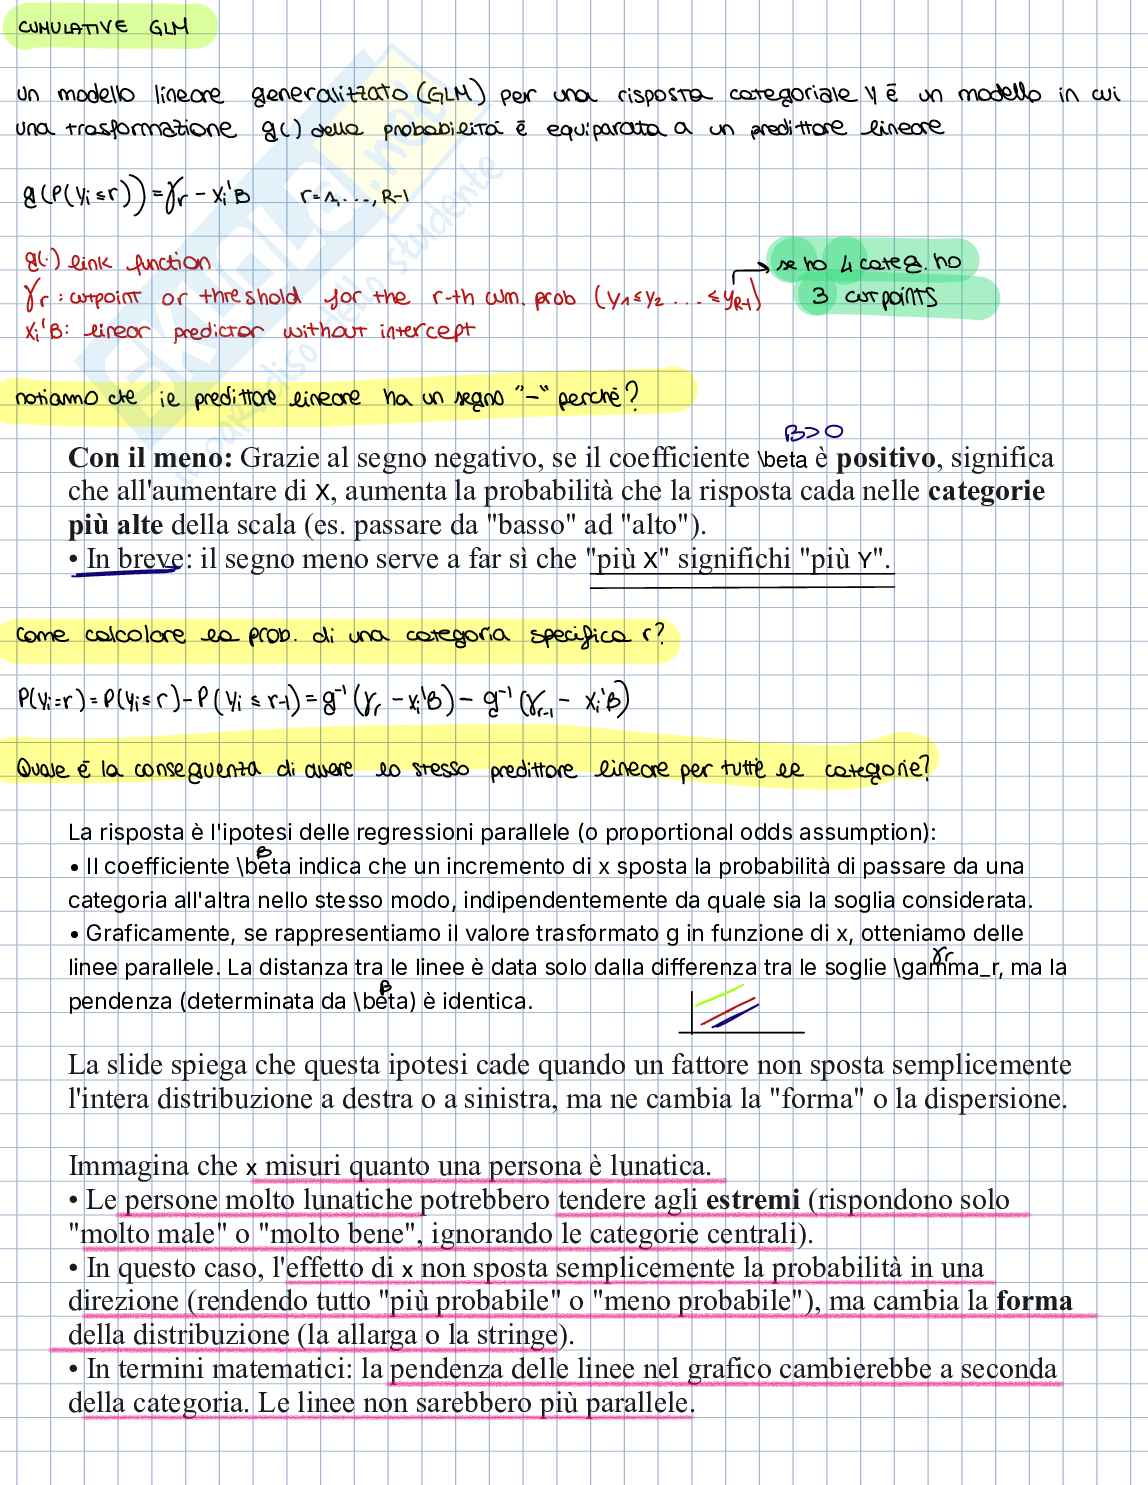 CUMULATIVE GLM
un modello lineare generalizzato (GLM) per una risposta categoriale y è un modello in cui
una trasformazione g() della probabilità è equiparata a un predittore lineare
g(P(yi≤r)) = γr - xi'B r=1,...,R-1
g(.) link function
se ho 4 categ. ho
γr : cutpoint or threshold for the r-th cum. prob (γ1≤γ2 ... ≤γR-1)
3 cutpoints
xi'B: linear predictor without intercept
notiamo che il predittore lineare ha un segno "-" perché?
B>0
Con il meno: Grazie al segno negativo, se il coefficiente \beta è positivo, significa
che all'aumentare di X, aumenta la probabilità che la risposta cada nelle categorie
più alte della scala (es. passare da "basso" ad "alto").
• In breve: il segno meno serve a far sì che "più X" significhi "più Y".
Come calcolare la prob. di una categoria specifica r?
P(yi=r)=P(yi≤r)-P(yi≤r-1)=g⁻¹(γr - xi'B) - g⁻¹(γr-1 - xi'B)
Quale è la conseguenza di avere lo stesso predittore lineare per tutte le categorie?
La risposta è l'ipotesi delle regressioni parallele (o proportional odds assumption):
B
• Il coefficiente \beta indica che un incremento di x sposta la probabilità di passare da una
categoria all'altra nello stesso modo, indipendentemente da quale sia la soglia considerata.
• Graficamente, se rappresentiamo il valore trasformato g in funzione di x, otteniamo delle
γr
linee parallele. La distanza tra le linee è data solo dalla differenza tra le soglie \gamma_r, ma la
B
pendenza (determinata da \beta) è identica.
La slide spiega che questa ipotesi cade quando un fattore non sposta semplicemente
l'intera distribuzione a destra o a sinistra, ma ne cambia la "forma" o la dispersione.
Immagina che x misuri quanto una persona è lunatica.
• Le persone molto lunatiche potrebbero tendere agli estremi (rispondono solo
"molto male" o "molto bene", ignorando le categorie centrali).
• In questo caso, l'effetto di x non sposta semplicemente la probabilità in una
direzione (rendendo tutto "più probabile" o "meno probabile"), ma cambia la forma
della distribuzione (la allarga o la stringe).
• In termini matematici: la pendenza delle linee nel grafico cambierebbe a seconda
della categoria. Le linee non sarebbero più parallele.